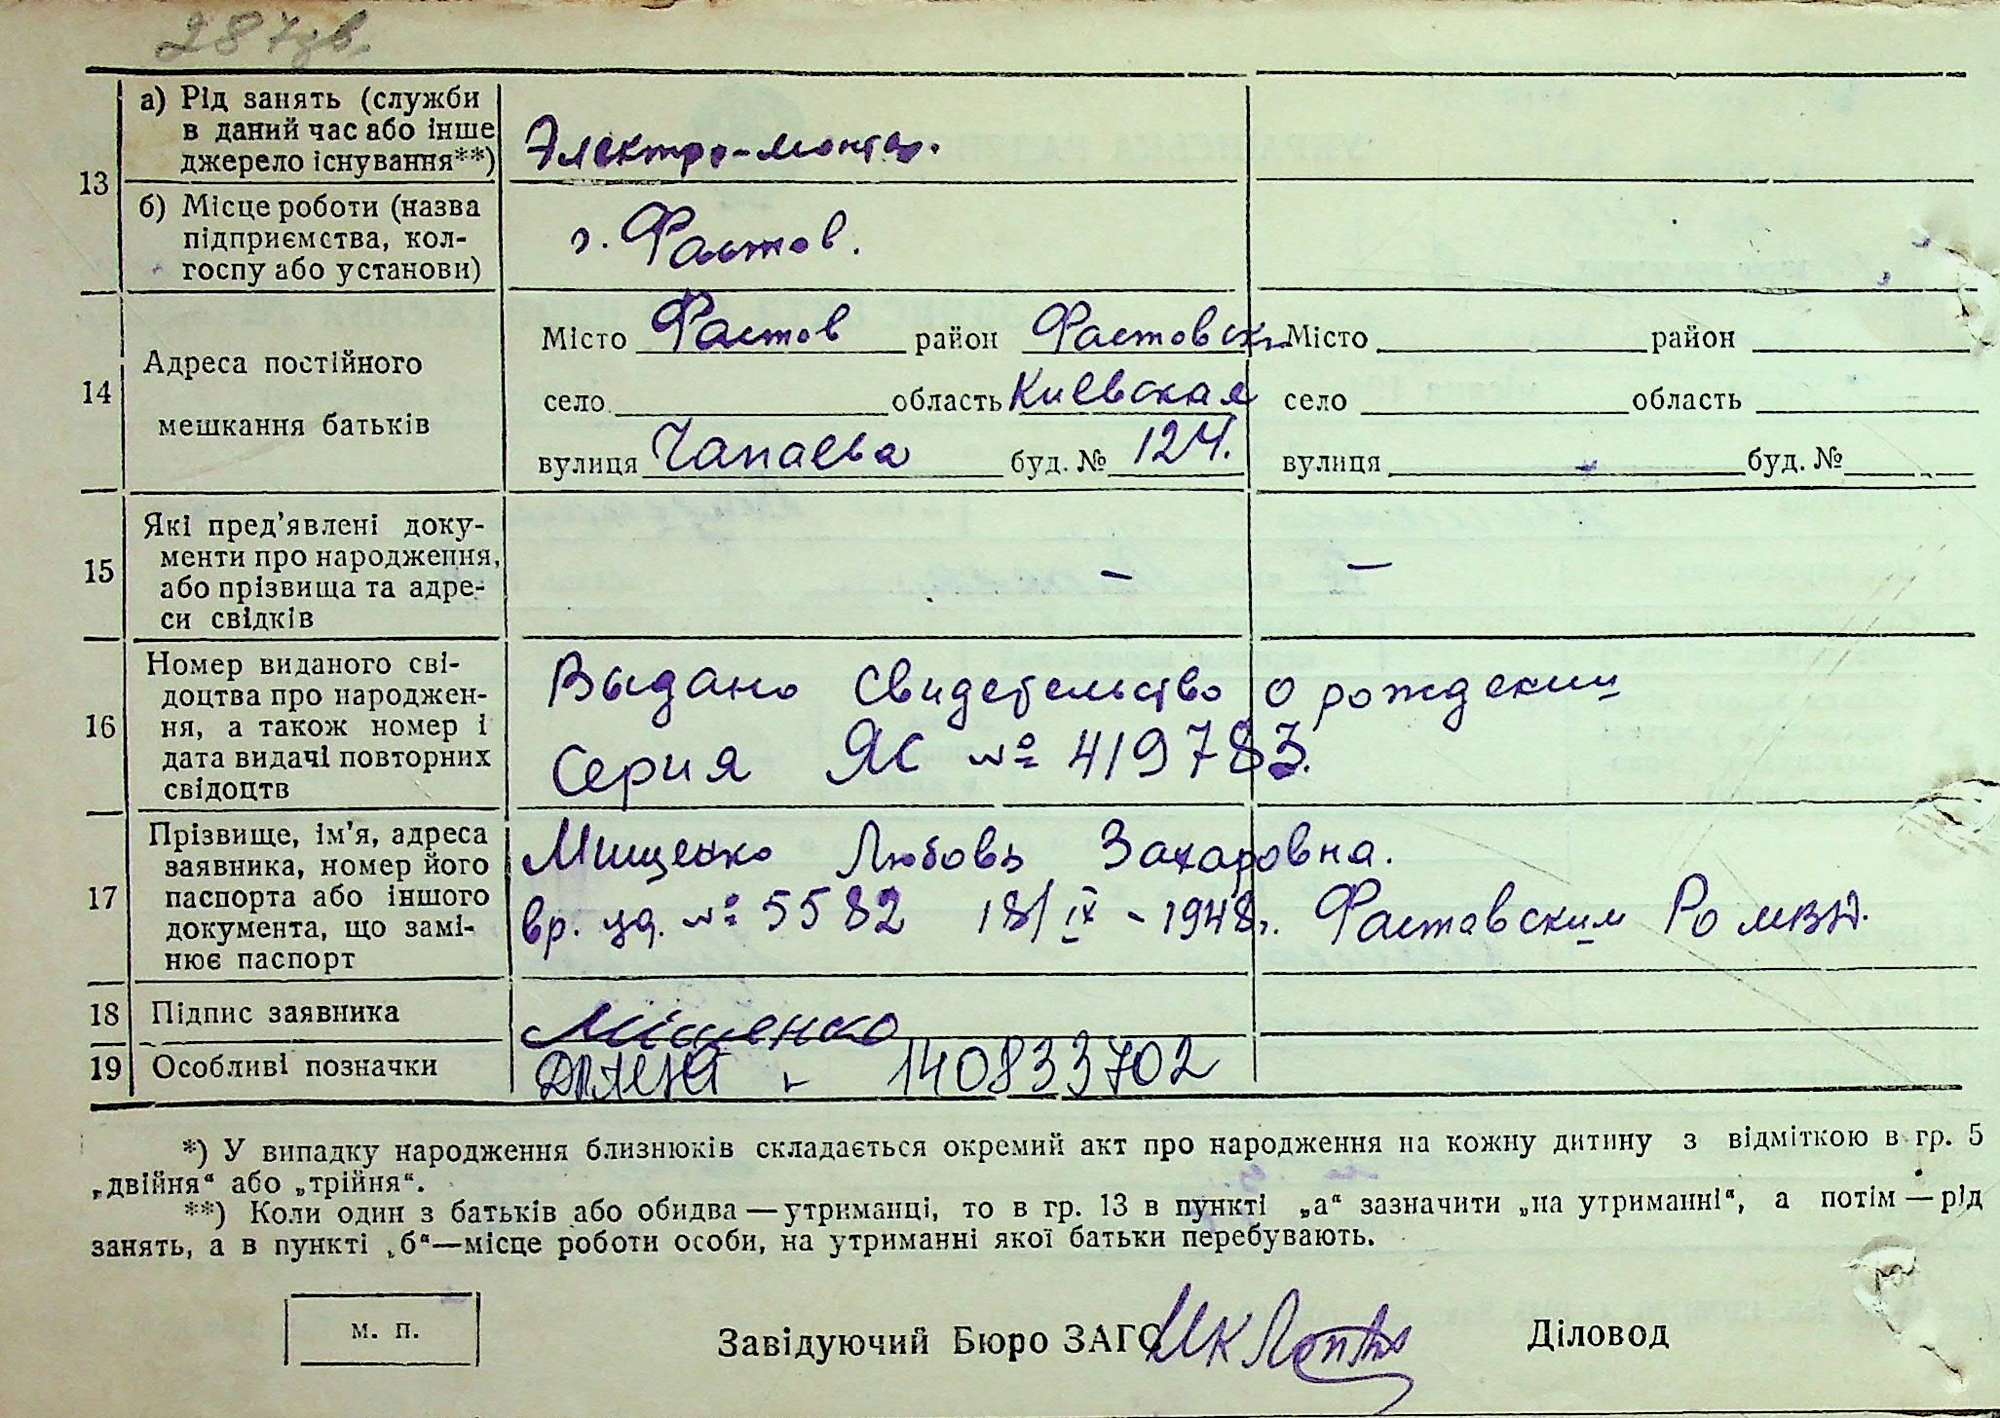 287зв.
13
а) Рід занять (служби
в даний час або інше
джерело існування**)
Электро-монтер.
б) Місце роботи (назва
підприємства, кол-
госпу або установи)
г. Фастов.
14
Адреса постійного
мешкання батьків
Місто Фастов район Фастовск. Місто район
село область Киевская село область
вулиця Чапаева буд. № 124. вулиця буд. №
15
Які пред'явлені доку-
менти про народження,
або прізвища та адре-
си свідків
– –
16
Номер виданого сві-
доцтва про народжен-
ня, а також номер і
дата видачі повторних
свідоцтв
Выдано свидетельство о рождении
Серия ЯС № 419783.
17
Прізвище, ім'я, адреса
заявника, номер його
паспорта або іншого
документа, що замі-
нює паспорт
Мищенко Любовь Захаровна.
вр. уд. № 5582 18/IX - 1948г. Фастовским РО МВД.
18 Підпис заявника Міщенко
19 Особливі позначки - 140833702
*) У випадку народження близнюків складається окремий акт про народження на кожну дитину з відміткою в гр. 5
„двійня“ або „трійня“.
**) Коли один з батьків або обидва — утриманці, то в гр. 13 в пункті „а“ зазначити „на утриманні“, а потім — рід
занять, а в пункті „б“—місце роботи особи, на утриманні якої батьки перебувають.
м. п.
Завідуючий Бюро ЗАГС Діловод